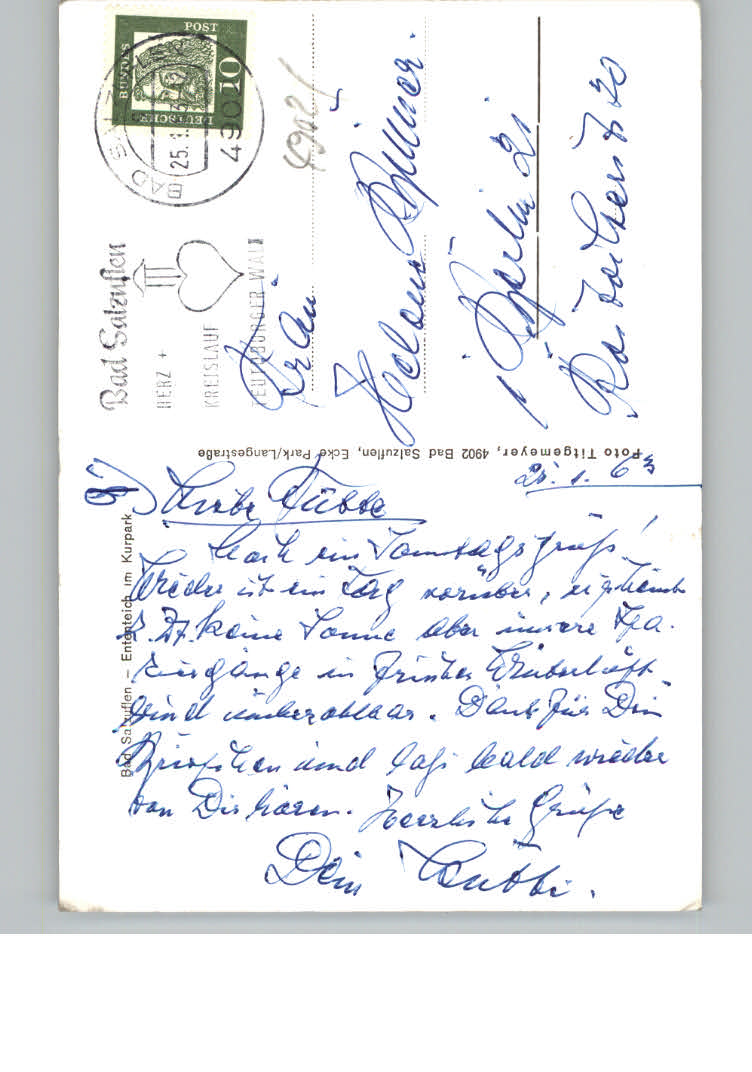 DEUTSCHE BUNDESPOST
10
BAD SALZUFLEN
25.1.63
4902
4902
Bad Salzuflen
HERZ +
KREISLAUF
TEUTOBURGER WALD
Frau
Helene
1 Berlin 21
20
Foto Titgemeyer, 4902 Bad Salzuflen, Ecke Park/Langestraße
Bad Salzuflen – Ententeich im Kurpark
25. 1. 63
8)
Liebe
Noch ein Sonntagsgruß!
Wieder ist ein Tag vorüber,
z. Zt. keine Sonne aber unsere Spa-
ziergänge in frischer Winterluft
sind wunderbar. Dank für Dein
und laß bald wieder
von Dir hören. Herzliche Grüße
Dein